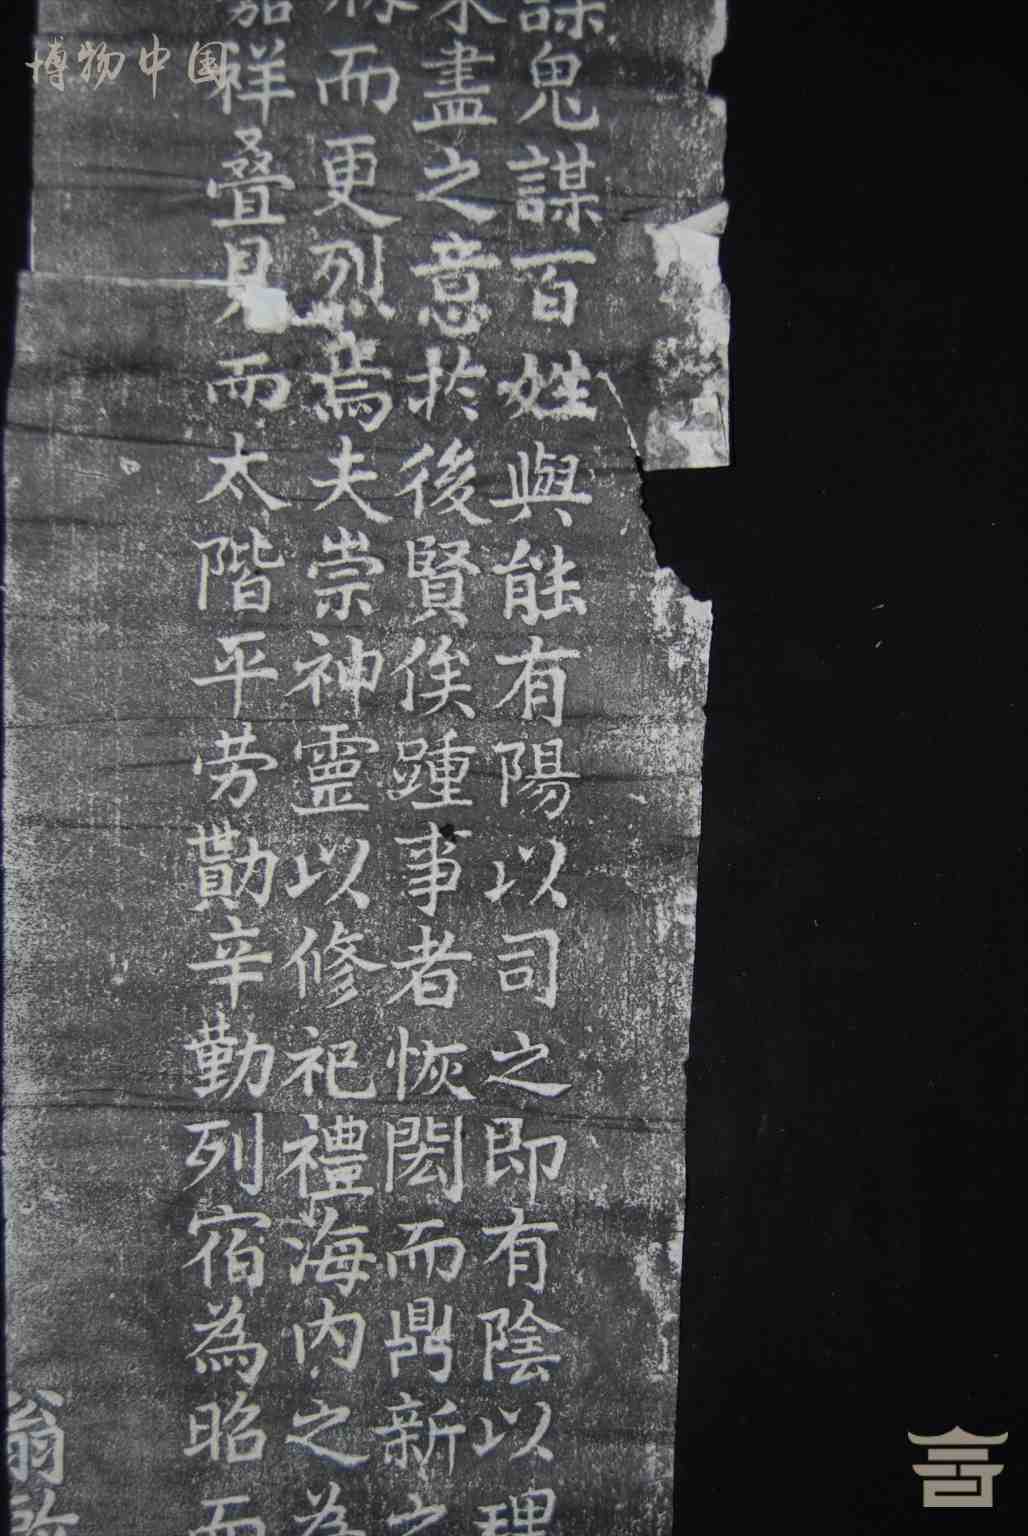 謀鬼謀百姓與能有陽以司之即有陰以理
未盡之意於後賢俟踵事者恢閎而鼎新之
而更烈焉夫崇神靈以修祀禮海内之為
嘉祥叠見而太階平劳勩辛勤列宿為昭而
翁
博物中国